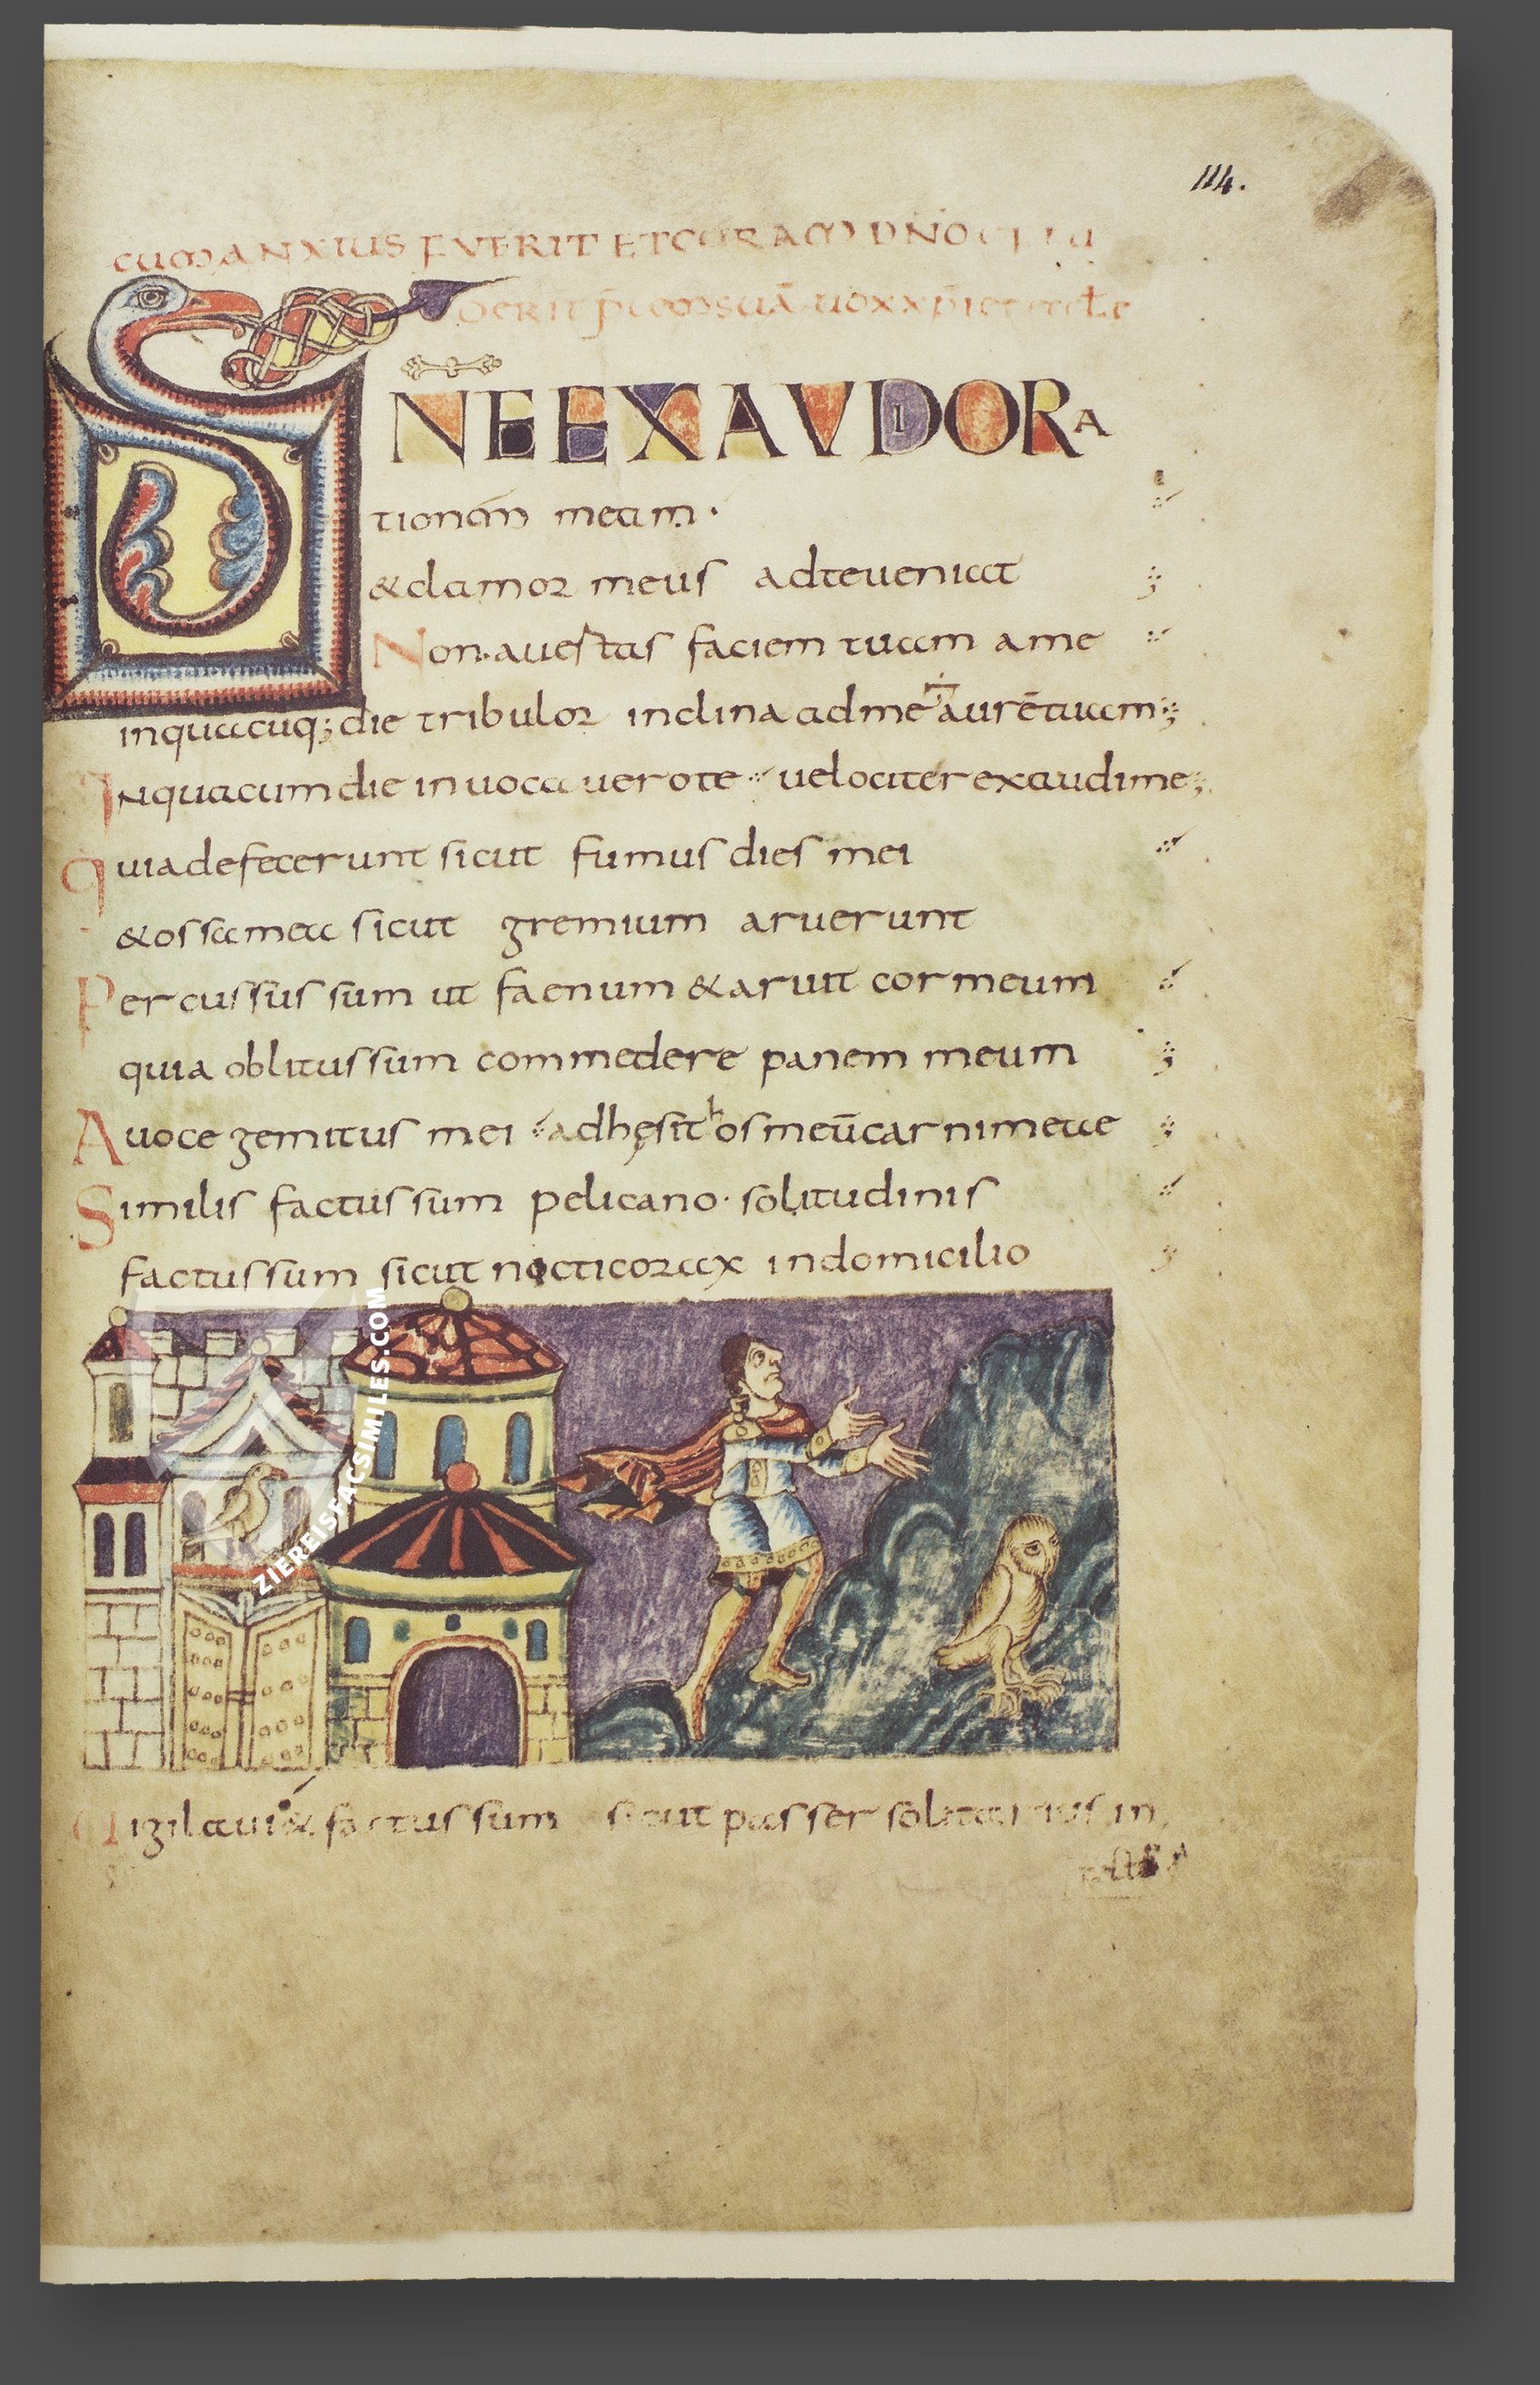 114.
CUM ANXIUS FUERIT ET CORAM DNO
DERIT PCEM SUĀ UOX XPI
DNE EXAUDI ORA
tionem meam.
& clamor meus ad te ueniat
Non auertas faciem tuam a me
in quacuq; die tribulor inclina ad me aurē tuam;
In quacum die inuocauero te uelociter exaudi me;
quia defecerunt sicut fumus dies mei
& ossa mea sicut gremium aruerunt
Percussus sum ut faenum & aruit cor meum
quia oblitus sum commedere panem meum
A uoce gemitus mei adhęsit os meū carni meae
Similis factus sum pelicano solitudinis
factus sum sicut nocticorax in domicilio
ZIEREISFACSIMILES.COM
Uigilaui & factus sum sicut passer solitarius in